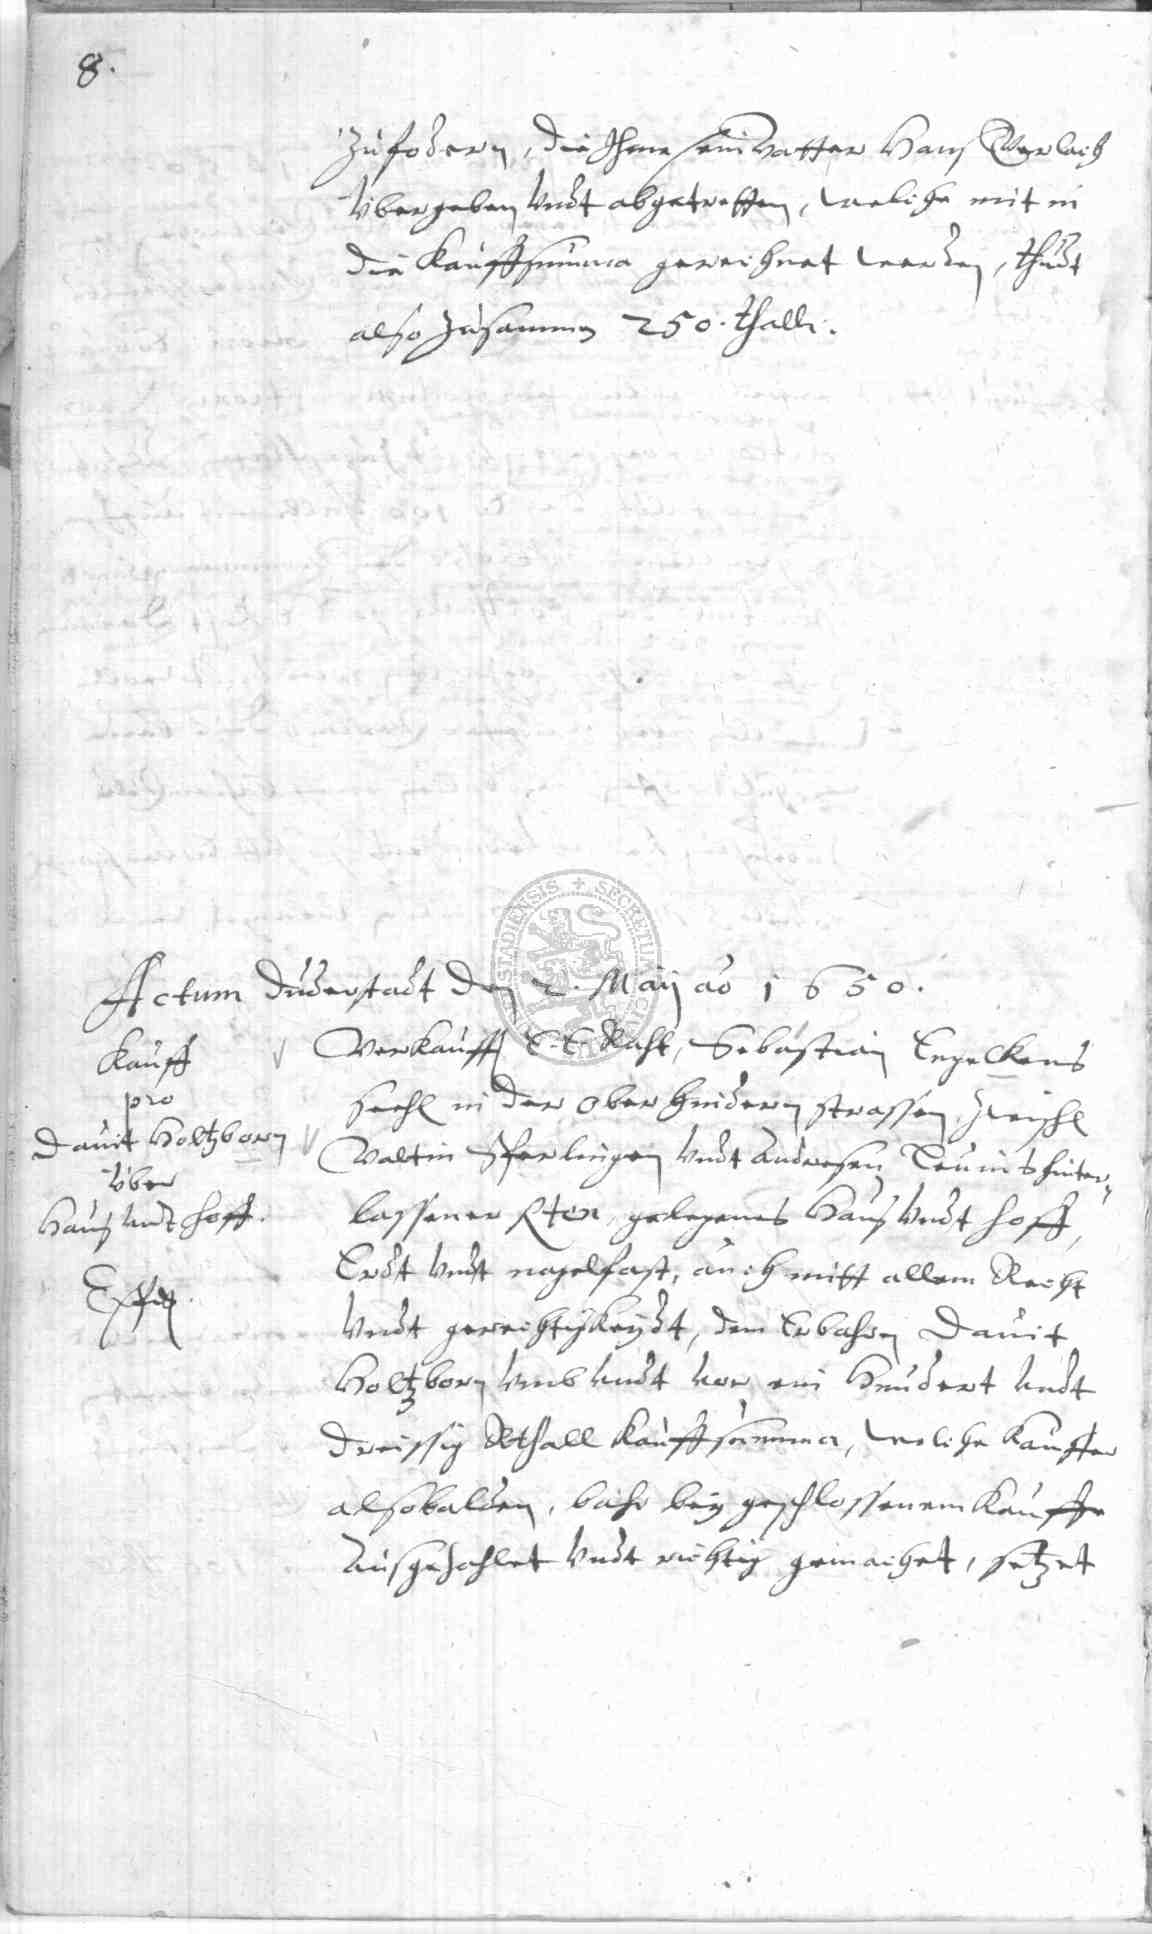 8.
Zu fodern, die Ihme sein Vatter Hans Gerlach
Vbergeben Vndt abgetretten, welche mit in
die Kauffsumma gerechnet werden, thudt
also Zusammen 250. thalr.
Actum Duderstadt den 2. Maij ao 1650.
Kauff
pro
Dauit Holtzborn
über
Hauß undt hoff.
Verkaufft E. E. Raht, Sebastian Engelkens
seehl in der ober hindern strassen zwischen
Valtin Sperlingen Vndt Andresen hinter-
lassener gelegenes Hauß Vndt hoff,
Erdt Vndt nagelfast, auch mitt allem Recht
Vndt gerechtigkeydt, dem Erbahrn Dauit
Holtzborn Vmb Vndt vor ein Hundert Vndt
dreissig Rthall Kauffsumma, welche Kauffer
alsobalden, bahr bey geschlossenem Kauffe
Ausgezahlet Vndt richtig gemachet, setzet
SECRETUM